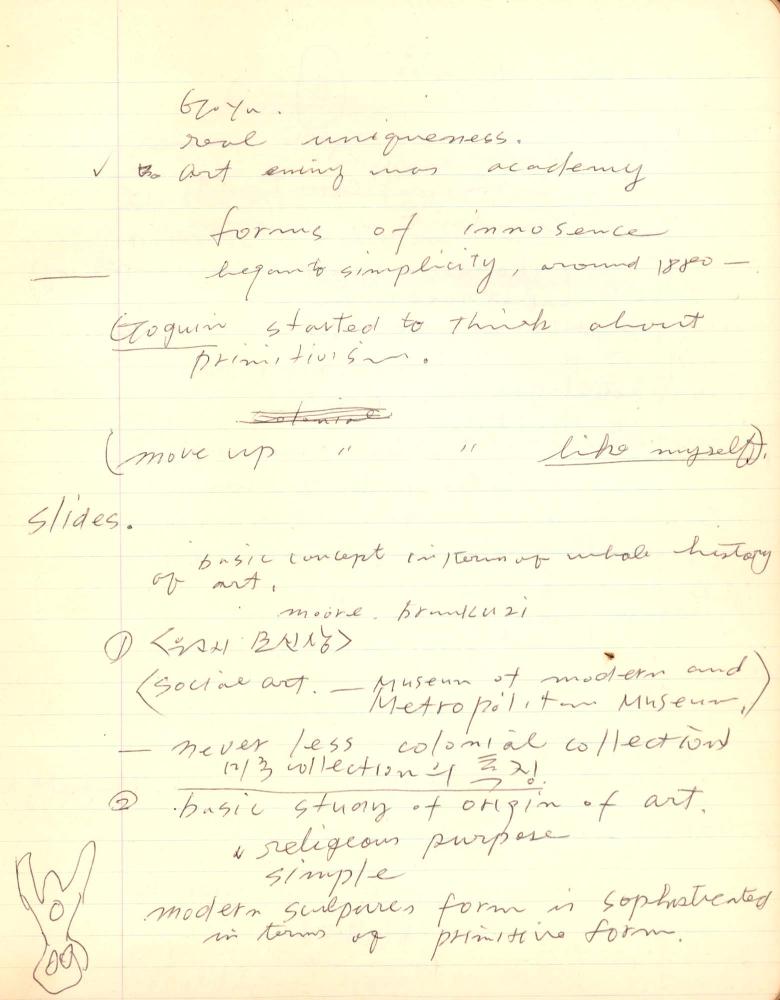 Goya.
real uniqueness.
✓ art enimy was academy
forms of innosence
began to simplicity, around 1880 —
Goguin started to think about
primitivism.
colonial
(move up " " like myself).
slides.
basic concept in term of whole history
of art.
moore. brankuzi
① <우리시 모신상>
(social art. — Museum of modern and
Metropolitan Museum.)
— never less colonial collection
미국 collection의 특징
② basic study of origin of art.
religeous purpose
simple
modern sculpures form is sophistrcated
in terms of primitive form.